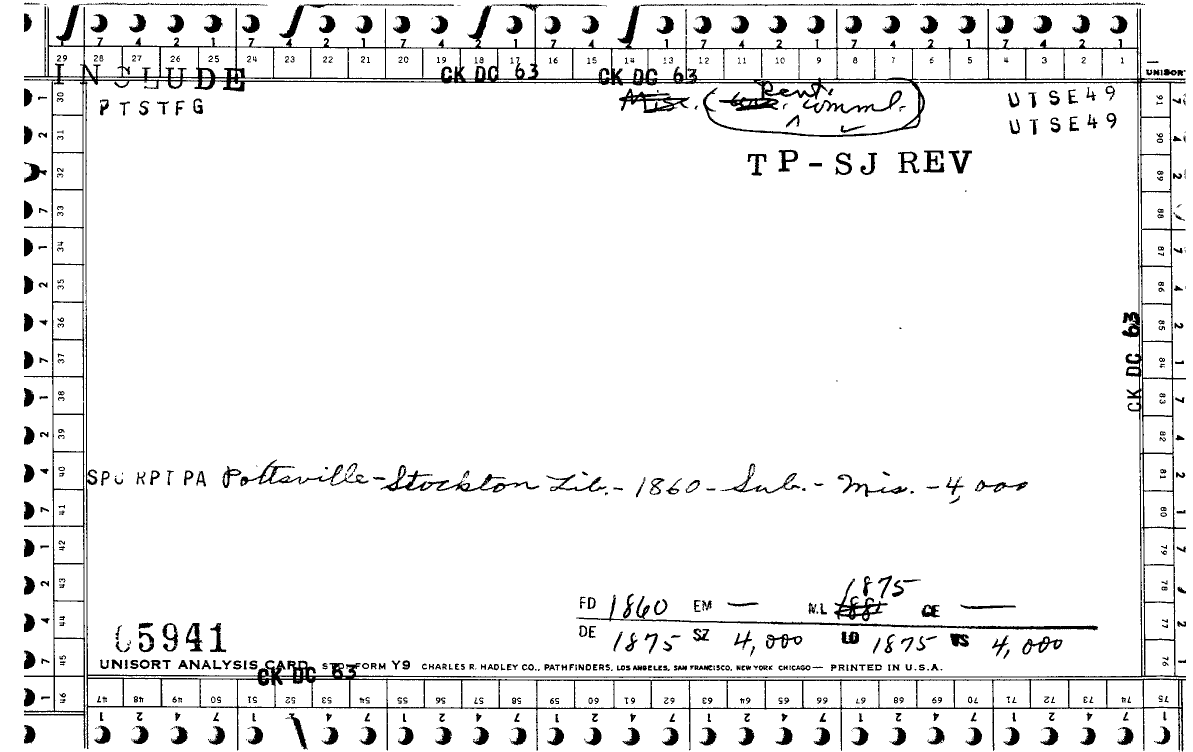 7 4 2 1 7 4 2 1 7 4 2 1 7 4 2 1 7 4 2 1 7 4 2 1 7 4 2 1
29 28 27 26 25 24 23 22 21 20 19 18 17 16 15 14 13 12 11 10 9 8 7 6 5 4 3 2 1
INCLUDE CK DC 63 CK DC 63 UNISORT
PTSTFG Misc. cent. comml. UTSE49
UTSE49
TP-SJ REV
30 31 32 33 34 35 36 37 38 39 40 41 42 43 44 45 46
91 90 89 88 87 86 85 84 83 82 81 80 79 78 77 76 75
CK DC 63
SPC RPT PA Pottsville - Stockton Lib. - 1860 - Sub. - Mis. - 4,000
1875
FD 1860 EM — N.L 1881 CE —
DE 1875 SZ 4,000 LD 1875 VS 4,000
05941
UNISORT ANALYSIS CARD STD. FORM Y9 CHARLES R. HADLEY CO., PATHFINDERS, LOS ANGELES, SAN FRANCISCO, NEW YORK CHICAGO — PRINTED IN U.S.A.
CK DC 63
47 48 49 50 51 52 53 54 55 56 57 58 59 60 61 62 63 64 65 66 67 68 69 70 71 72 73 74 75
1 2 4 7 1 2 4 7 1 2 4 7 1 2 4 7 1 2 4 7 1 2 4 7 1 2 4 7